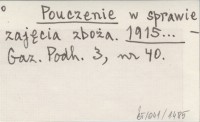 Pouczenie w sprawie
zajęcia zboża. 1915... -
Gaz. Podh. 3, nr 40.